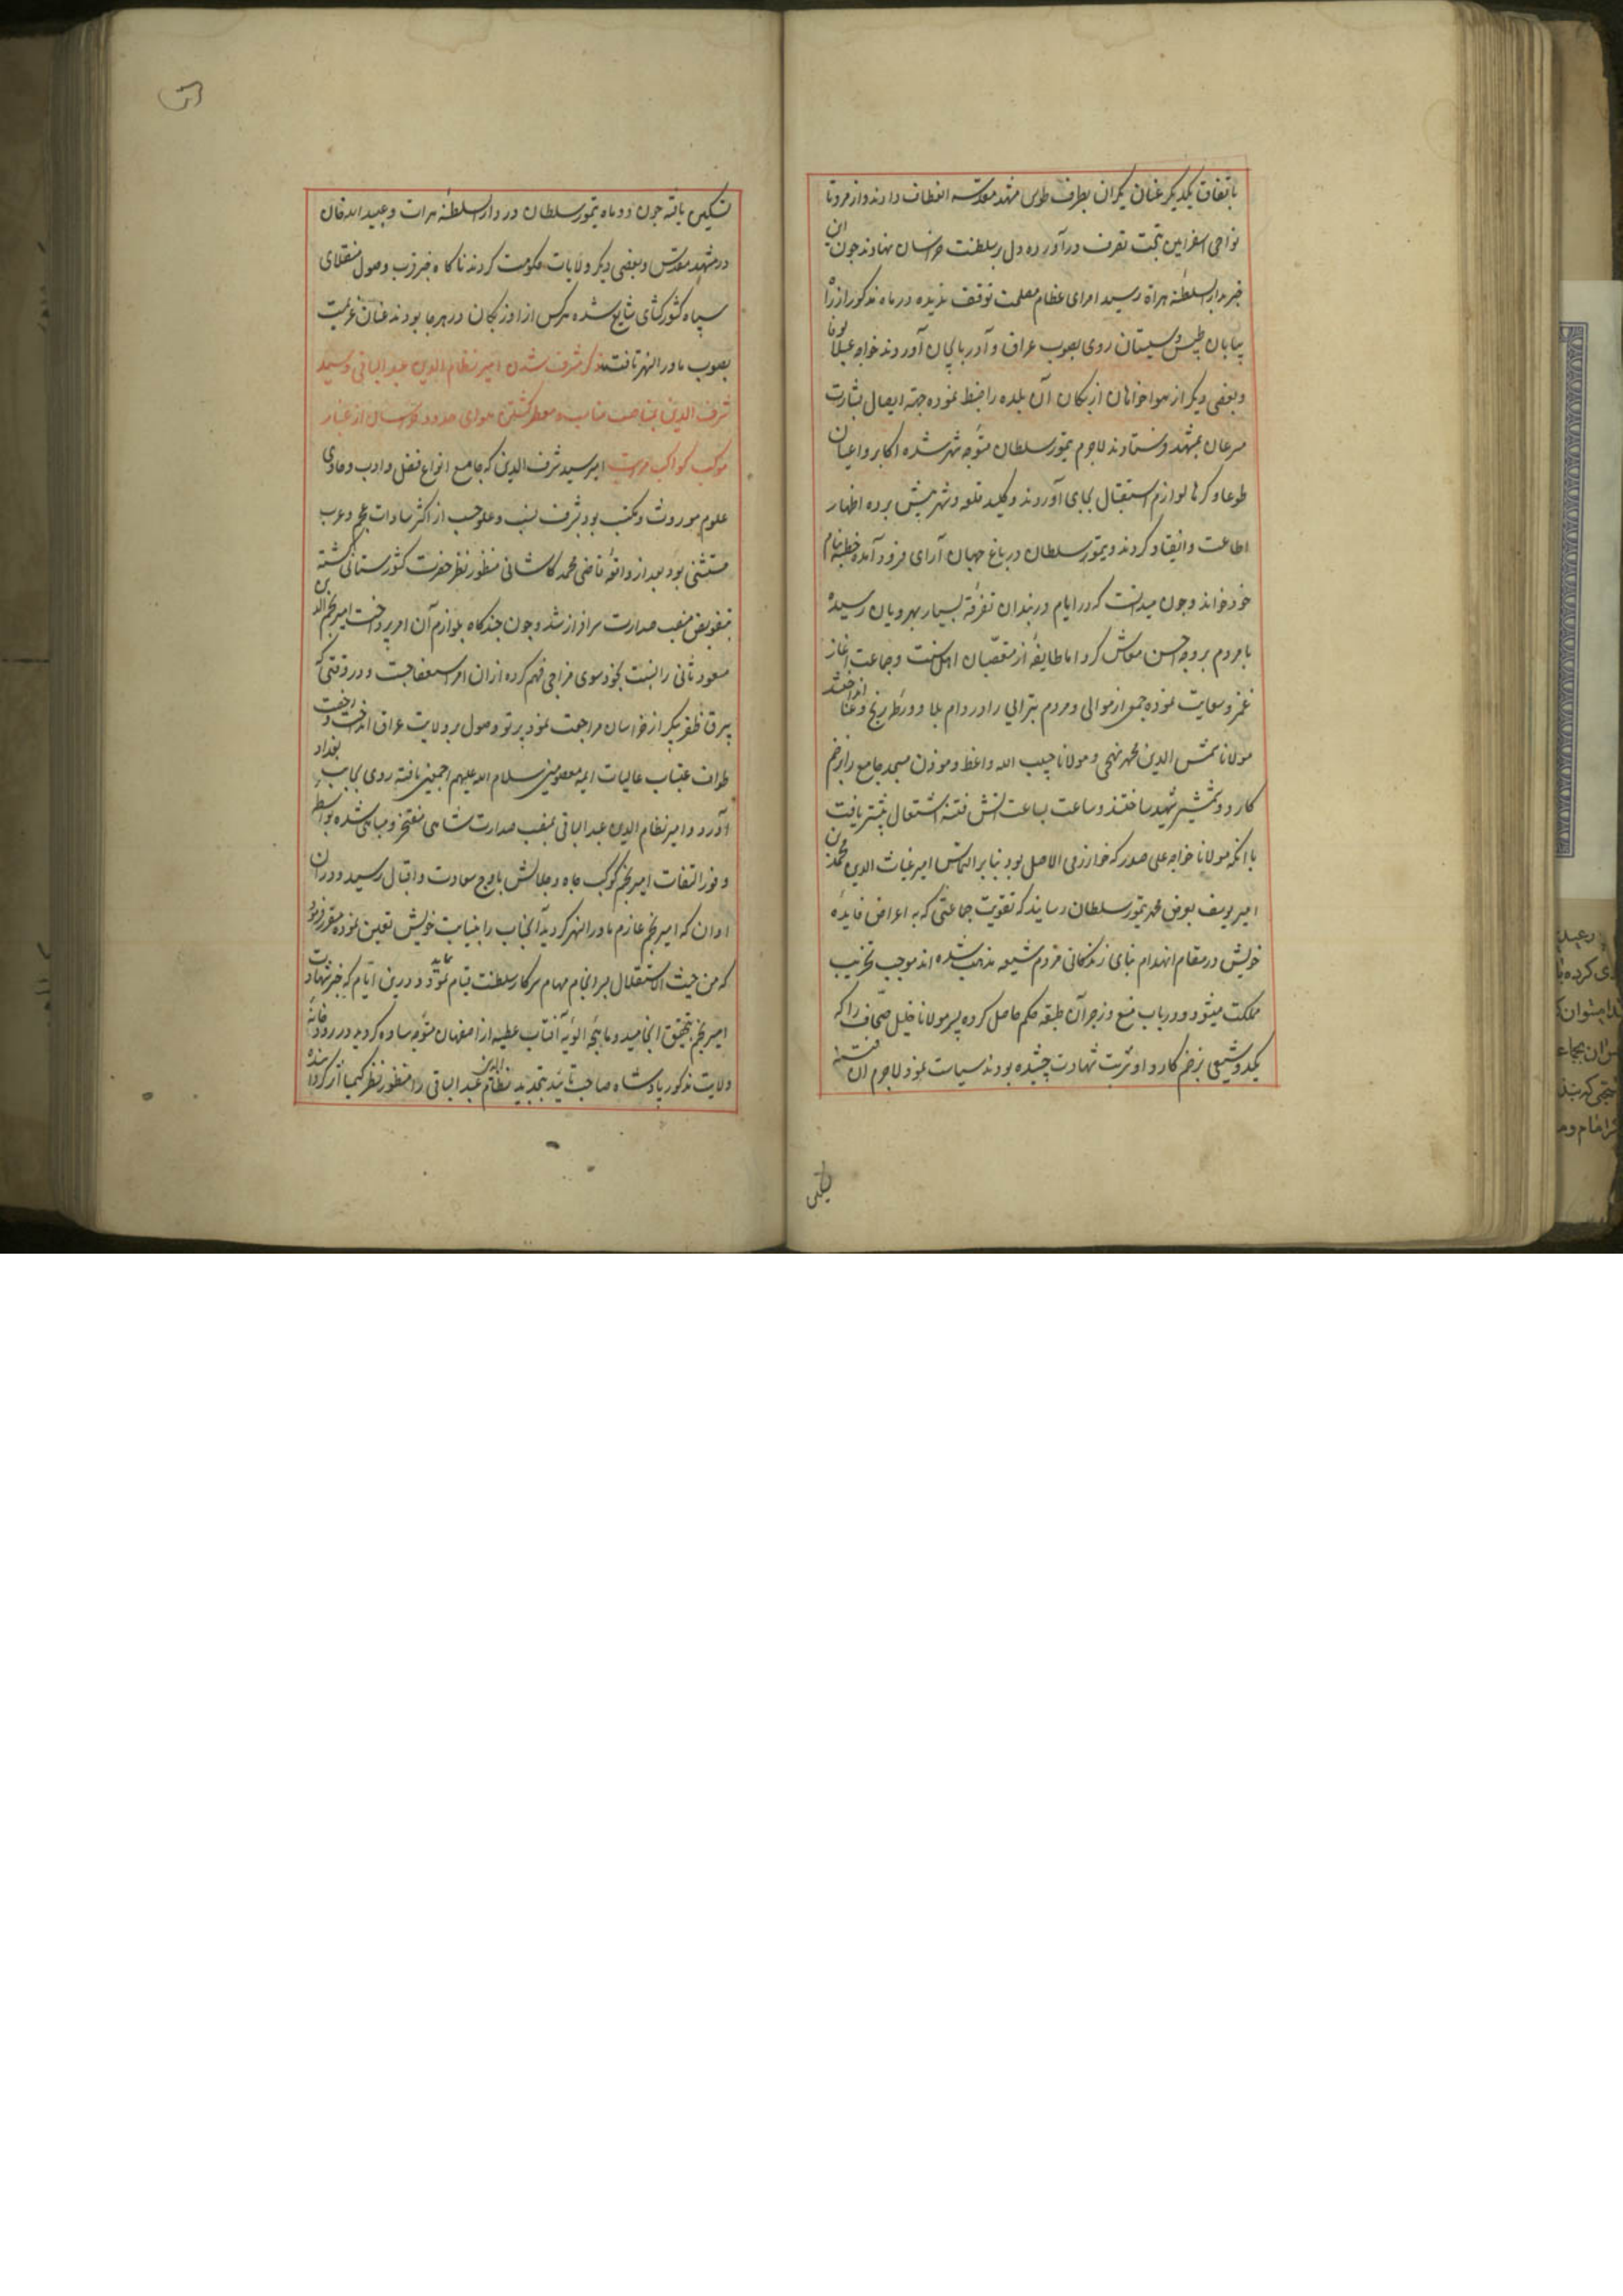 باتفاق یکدیگر عنان یکران بطرف طوس مشهد مقدسه انعطاف دادند و از مرو تا
نواحی اسفراین تحت تصرف درآورده دل بر سلطنت خراسان نهادند چون این
خبر بدار السلطنه هراة رسید امرای عظام مصلحت توقف ندیده در ماه مذکور از راه
بیابان طبس و سیستان روی بصوب عراق و آذربایجان آوردند خواجه
و بعضی دیگر از هواخواهان ازبکان آن بلده را ضبط نموده جهة ایصال بشارت
مسرعان بمشهد فرستادند لاجرم تیمور سلطان متوجه شهر شده اکابر و اعیان
طوعا و کرها لوازم استقبال بجای آوردند و کلید قلعه و شهر پیش برده اظهار
اطاعت و انقیاد کردند و تیمور سلطان در باغ جهان آرای فرود آمده خطبه بنام
خود خواند و چون میدانست که در ایام در بندان تفرقه بسیار بهرویان رسیده
با مردم بر وجه احسن معاش کرد اما طایفه از متعصبان اهل سنت و جماعت آغاز
غمز و سعایت نموده جمعی از موالی و مردم تبرائی را در دام بلا و ورطه رنج و عنا انداختند
مولانا شمس الدین محمد و مولانا حبیب الله واعظ و موذن مسجد جامع را بزخم
کارد و شمشیر شهید ساختند و ساعت بساعت آتش فتنه اشتعال بیشتر یافت
با آنکه مولانا خواجه علی صدر که خوارزمی الاصل بود بنابر التماس امیر غیاث الدین محمد بن
امیر یوسف بعرض محمد تیمور سلطان رسانید که تقویت جماعتی که به اعراض فایده
خویش در مقام انهدام بنای زندگانی مردم شیعه مذهب شده اند موجب تخریب
مملکت میشود و در باب منع و زجر آن طبقه حکم حاصل کرده پسر مولانا خلیل صحاف را که
یکدو شیعی بزخم کارد او شربت شهادت چشیده بودند سیاست نمود لاجرم آن فتنه
تسکین
تسکین یافته چون دو ماه تیمور سلطان در دار السلطنه هرات و عبید الله خان
در مشهد مقدس و بعضی دیگر ولایات حکومت کردند ناگاه خبر قرب وصول منقلای
سپاه کشورکشای شایع شده هرکس از اوزبکان در هرجا بودند عنان عزیمت
بصوب ماوراالنهر تافتند ذکر مشرف شدن امیر نظام الدین عبد الباقی و سید
شرف الدین بمناصب مناسبه و معطر گشتن هوای حدود خراسان از غبار
موکب کواکب مراتب امیر سید شرف الدین که جامع انواع فضل و ادب و حاوی
علوم موروث و مکتسب بود بشرف نسب و علو حسب از اکثر سادات عجم و عرب
مستثنی بود بعد از واقعه قاضی محمد کاشانی منظور نظر حضرت کشورستانی گشته
بتفویض منصب صدارت سرافراز شد و چون چندگاه بلوازم آن امر پرداخت امیر نجم الدین
مسعود ثانی را بنسبت بخود سوی مزاجی فهم کرده از آن امر استعفا جست و در وقتی که
بیرق ظفر پیکر از خراسان مراجعت نمود پرتو وصول بر ولایت عراق انداخت رخصت
طواف عتبات عالیات ایمه معصومین سلام الله علیهم اجمعین یافته روی بجانب بغداد
آورد و امیر نظام الدین عبد الباقی بمنصب صدارت شاهی مفتخر و مباهی شده بواسطه
وفور التفات امیر نجم کوکب جاه و جلالش باوج سعادت و اقبال رسید و در آن
اوان که امیر نجم عازم ماوراالنهر گردید آنجناب را بنیابت خویش تعیین نموده مقرر فرمود
که من حیث الاستقلال بسرانجام مهام سرکار سلطنت قیام نماید و درین ایام که خبر شهادت
امیر نجم بتحقیق انجامید و ماهچه الویه آفتاب عطیه از اصفهان متوجه ساوه گردید در رودخانه
ولایت مذکور پادشاه صاحب تأیید بتجدید نظام الدین عبد الباقی را منظور نظر کیمیا اثر گردانیده